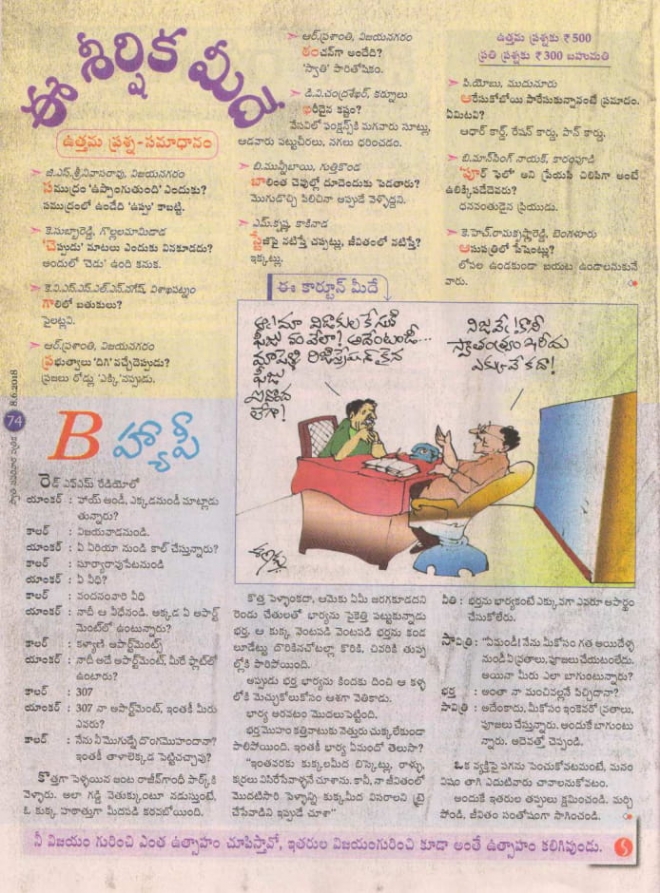 ఈ శీర్షిక మీది
ఉత్తమ ప్రశ్న-సమాధానం
జి.ఎన్.శ్రీనివాసరావు, విజయనగరం
సముద్రం 'ఉప్పొంగుతుంది' ఎందుకు?
సముద్రంలో ఉండేది 'ఉప్పు' కాబట్టి.
కె.సుబ్బారెడ్డి, గొల్లలమామిడాడ
'చెప్పుడు' మాటలు ఎందుకు వినకూడదు?
అందులో 'చెడు' ఉంది కనుక.
విశాఖపట్నం
గాలిలో బతుకులు?
పైలట్లవి.
ఆర్.ప్రశాంతి, విజయనగరం
ప్రభుత్వాలు 'దిగి' వచ్చేదెప్పుడు?
ప్రజలు రోడ్లు 'ఎక్కి'నప్పుడు.
ఆర్.ప్రశాంతి, విజయనగరం
ఠంచన్‌గా అందేది?
'స్వాతి' పారితోషికం.
డి.వి.చంద్రశేఖర్, కర్నూలు
భరీదైన కష్టం?
వేసవిలో ఫంక్షన్స్‌కి మగవారు సూట్లు,
ఆడవారు పట్టుచీరలు, నగలు ధరించడం.
బి.మున్నీబాయి, గుత్తికొండ
బాలింత చెవుల్లో దూదెందుకు పెడతారు?
మొగుడొచ్చి పిలిచినా అప్పుడే వెళ్ళొద్దని.
ఎమ్.కృష్ణ, కాకినాడ
స్టేజిపై నటిస్తే చప్పట్లు, జీవితంలో నటిస్తే?
ఇక్కట్లు.
ఉత్తమ ప్రశ్నకు ₹500
ప్రతి ప్రశ్నకు ₹300 బహుమతి
సీ.యోబు, ముదునూరు
ఆరేసుకోబోయి పారేసుకున్నావంటే ప్రమాదం.
ఏమిటవి?
ఆధార్ కార్డ్, రేషన్ కార్డు, పాన్ కార్డు.
బి.మాన్‌సింగ్ నాయక్, కారంపూడి
'పూర్ ఫెలో' అని ప్రేయసి ఎవరిగా అంటే
ఉలిక్కిపడేదెవరు?
ధనవంతుడైన ప్రియుడు.
కె.హెచ్.రామకృష్ణారెడ్డి, బెంగళూరు
ఆసుపత్రిలో పేషెంట్లు?
లోపల ఉండకుండా బయట ఉండాలనుకునే
వారు.
ఈ కార్టూన్ మీదే
ఈ! మా విడాకుల కేసుకి
ఫీజు
నిజమే! కానీ
స్వాతంత్ర్యం ఖరీదు
ఎక్కువే కదా!
స్వాతి సపరివార పత్రిక 74 8.6.2018
B హ్యాపీ
రెడ్ ఎఫ్ఎమ్ రేడియోలో
యాంకర్ : హాయ్ అండీ, ఎక్కడనుండీ మాట్లాడు
తున్నారు?
కాలర్ : విజయవాడనుండి.
యాంకర్ : ఏ ఏరియా నుండి కాల్ చేస్తున్నారు?
కాలర్ : సూర్యారావుపేటనుండి
యాంకర్ : ఏ వీధి?
కాలర్ : నందనంవారి వీధి
యాంకర్ : నాదీ ఆ వీధేనండి. అక్కడ ఏ అపార్ట్
మెంట్‌లో ఉంటున్నారు?
కాలర్ : కళ్యాణి అపార్ట్‌మెంట్స్
యాంకర్ : నాదీ అదే అపార్ట్‌మెంట్, మీరే ఫ్లాట్‌లో
ఉంటారు?
కాలర్ : 307
యాంకర్ : 307 నా అపార్ట్‌మెంట్, ఇంతకీ మీరు
ఎవరు?
కాలర్ : నేను నీ మొగుణ్నే దొంగమొహందానా?
ఇంతకీ తాళాలెక్కడ పెట్టిచచ్చావు?
కొత్తగా పెళ్ళయిన జంట రాజీవ్‌గాంధీ పార్క్‌కి
వెళ్ళారు. అలా గడ్డి వెతుక్కుంటూ నడుస్తుంటే,
ఓ కుక్క హఠాత్తుగా మీదపడి కరవబోయింది.
కొత్త పెళ్ళాంకదా, ఆమెకు ఏమీ జరగకూడదని
రెండు చేతులతో భార్యను పైకెత్తి పట్టుకున్నాడు
భర్త, ఆ కుక్క వెంటపడి వెంటపడి భర్తను కండ
లూడేట్టు దొరికినచోటల్లా కొరికి, చివరికి తుప్ప
ల్లోకి పారిపోయింది.
అప్పుడు భర్త భార్యను కిందకు దించి ఆ కళ్ళ
లోకి మెచ్చుకోలుకోసం ఆశగా వెతికాడు.
భార్య అరవటం మొదలుపెట్టింది.
భర్తమొహం కత్తివాటుకు నెత్తురు చుక్కలేకుండా
పాలిపోయింది. ఇంతకీ భార్య ఏమందో తెలుసా?
"ఇంతవరకు కుక్కలమీద బిస్కెట్లు, రాళ్ళు,
కర్రలు విసిరేసేవాళ్ళనే చూశాను. కానీ, నా జీవితంలో
మొదటిసారి పెళ్ళాన్ని కుక్కమీద విసరాలని ట్రై
చేసేవాడిని ఇప్పుడే చూశా"
నీతి : భర్తను భార్యకంటే ఎక్కువగా ఎవరూ అపార్థం
చేసుకోలేరు.
సావిత్రి : "ఏమండీ! నేను మీకోసం గత అయిదేళ్ళ
నుండీ ఏ వ్రతాలు, పూజలు చేయటంలేదు.
అయినా మీరు ఎలా బాగుంటున్నారు?
భర్త : అంతా నా మంచివల్లనే పిచ్చిదానా?
సావిత్రి : అదేంకాదు, మీకోసం ఇంకెవరో వ్రతాలు,
పూజలు చేస్తున్నారు. అందుకే బాగుంటు
న్నారు. అదెవత్తో చెప్పండి.
ఒక వ్యక్తిపై పగను పెంచుకోవటమంటే, మనం
విషం తాగి ఎదుటివారు చావాలనుకోవటం.
అందుకే ఇతరుల తప్పులు క్షమించండి. మర్చి
పోండి, జీవితం సంతోషంగా సాగించండి.
నీ విజయం గురించి ఎంత ఉత్సాహం చూపిస్తావో, ఇతరుల విజయంగురించి కూడా అంతే ఉత్సాహం కలిగివుండు.